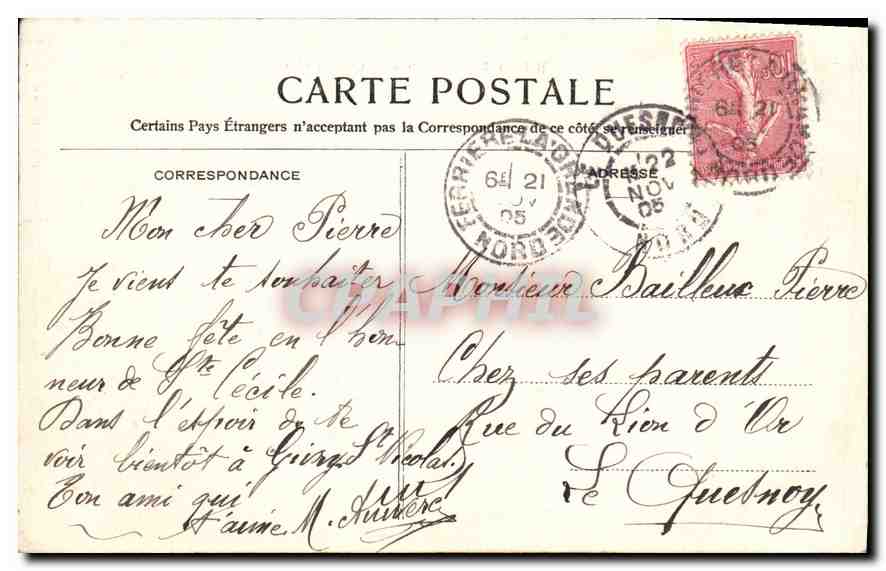 CARTE POSTALE
Certains Pays Étrangers n'acceptent pas la Correspondance de ce côté, se renseigner
CORRESPONDANCE
ADRESSE
FERRIERE-LA-GRANDE NORD
6E 21
NOV
05
LE QUESNOY
22
NOV
05
NORD
10
6E 21
05
Mon cher Pierre
Je viens te souhaiter
Bonne fête en l'hon-
neur de Ste Cécile.
Dans l'espoir de te
voir bientôt à St Nicolas
Ton ami qui
t'aime M.
Monsieur Bailleux Pierre
Chez ses parents
Rue du Lion d'Or
Le Quesnoy
CPAPHIL